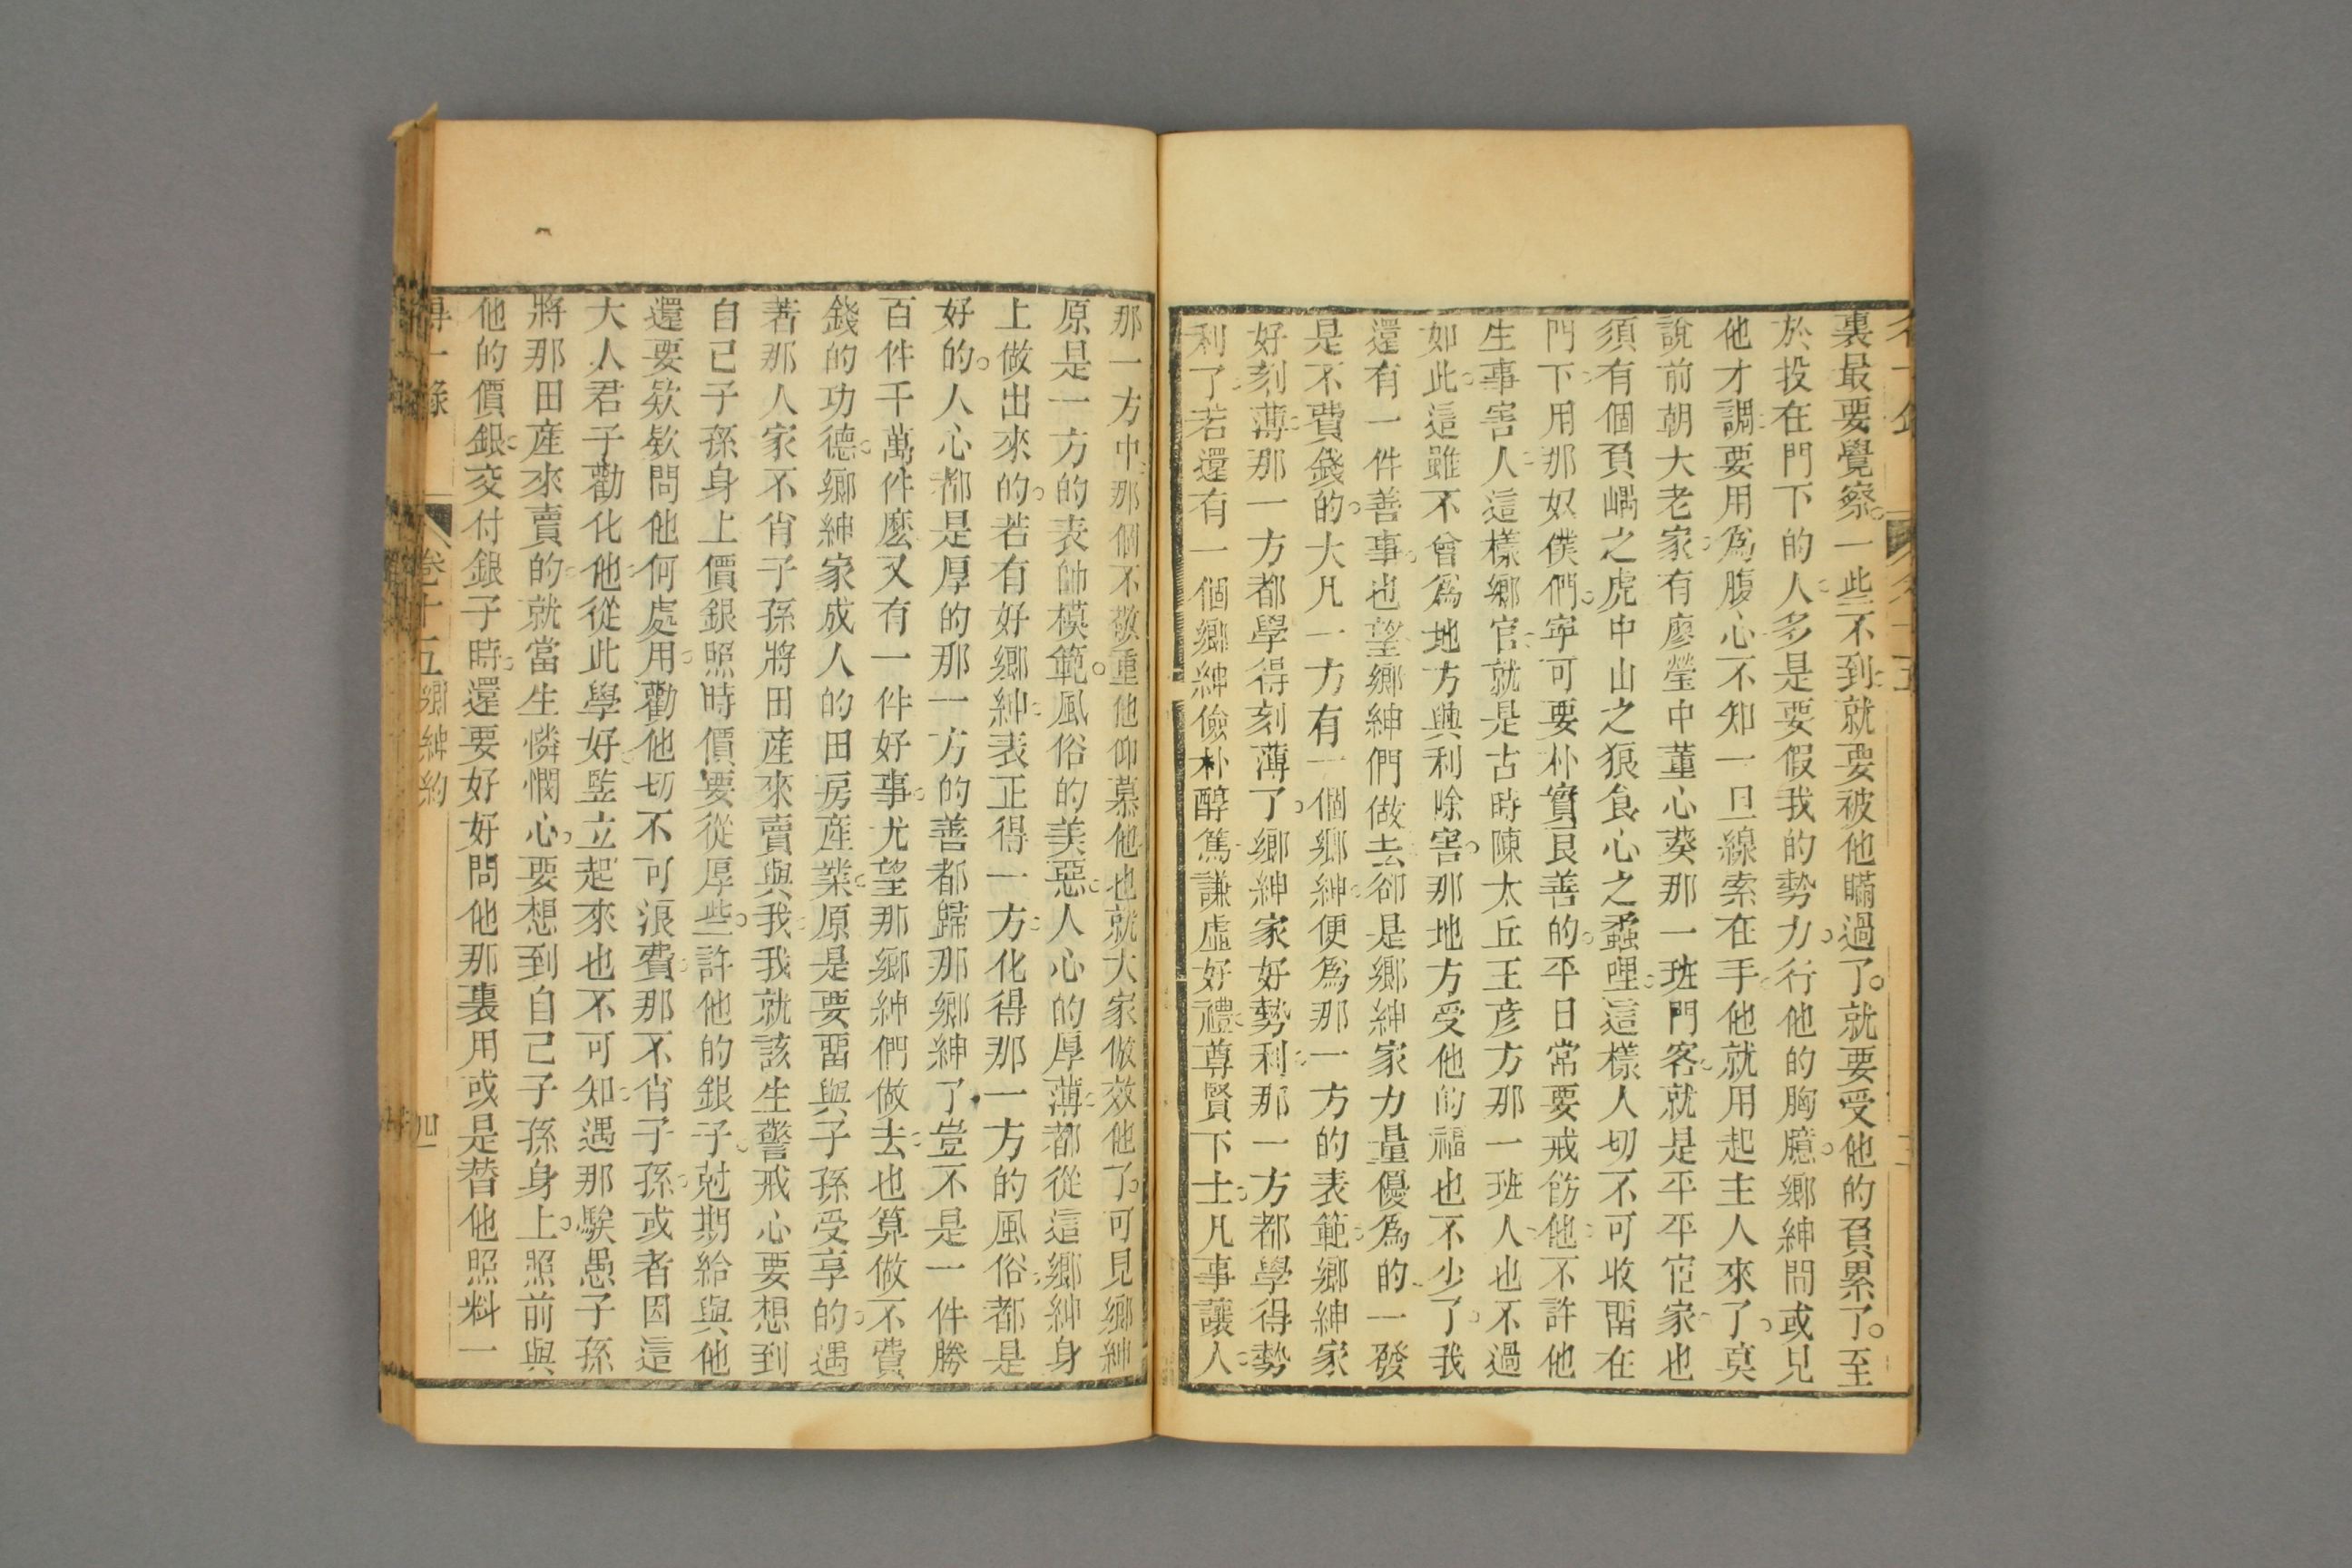 裏最要覺察。一些不到。就要被他瞞過了。就要受他的負累了。至
於投在門下的人。多是要假我的勢力。行他的胸臆。鄉紳問或見
他才調。要用爲腹心。不知一旦線索在手。他就用起主人來了。莫
說前朝大老家。有廖瑩中董心葵那一班門客。就是平平宦家。也
須有個負嵎之虎。中山之狼。食心之蝨哩。這樣人切不可收畱在
門下。用那奴僕們。寕可要朴實良善的。平日常要戒飭他。不許他
生事害人。這樣鄉官。就是古時陳太丘王彦方那一班人。也不過
如此。這雖不曾爲地方興利除害。那地方受他的福也不少了。我
還有一件善事。也望鄉紳們做去。卻是鄉紳家力量優爲的。一發
是不費錢的。大凡一方有一個鄉紳。便爲那一方的表範。鄉紳家
好刻薄。那一方都學得刻薄了。鄉紳家好勢利。那一方都學得勢
利了。若還有一個鄉紳儉朴醇篤。謙虛好禮。尊賢下士。凡事讓人。
那一方中。那個不敬重他仰慕他。也就大家倣效他了。可見鄉紳
原是一方的表帥模範。風俗的美惡。人心的厚薄。都從這鄉紳身
上做出來的。若有好鄉紳。表正得一方。化得那一方的風俗。都是
好的。人心都是厚的。那一方的善都歸那鄉紳了。豈不是一件勝
百件千萬件麼。又有一件好事。尤望那鄉紳們做去。也算做不費
錢的功德。鄉紳家成人的田房産業。原是要畱與子孫受享的。遇
若那人家不肖子孫將田産來賣與我。我就該生警戒心。要想到
自己子孫身上。價銀照時價。要從厚些。許他的銀子。尅期給與他。
還要欵欵問他何處用。勸他切不可浪費。那不肖子孫。或者因這
大人君子勸化他。他從此學好。監立起來。也不可知。遇那騃愚子孫
將那田産來賣的。就當生憐憫心。要想到自己子孫身上。照前與
他的價銀。交付銀子時。還要好好問他那裏用。或是替他照料一
得一錄 卷十五 鄉紳約 四